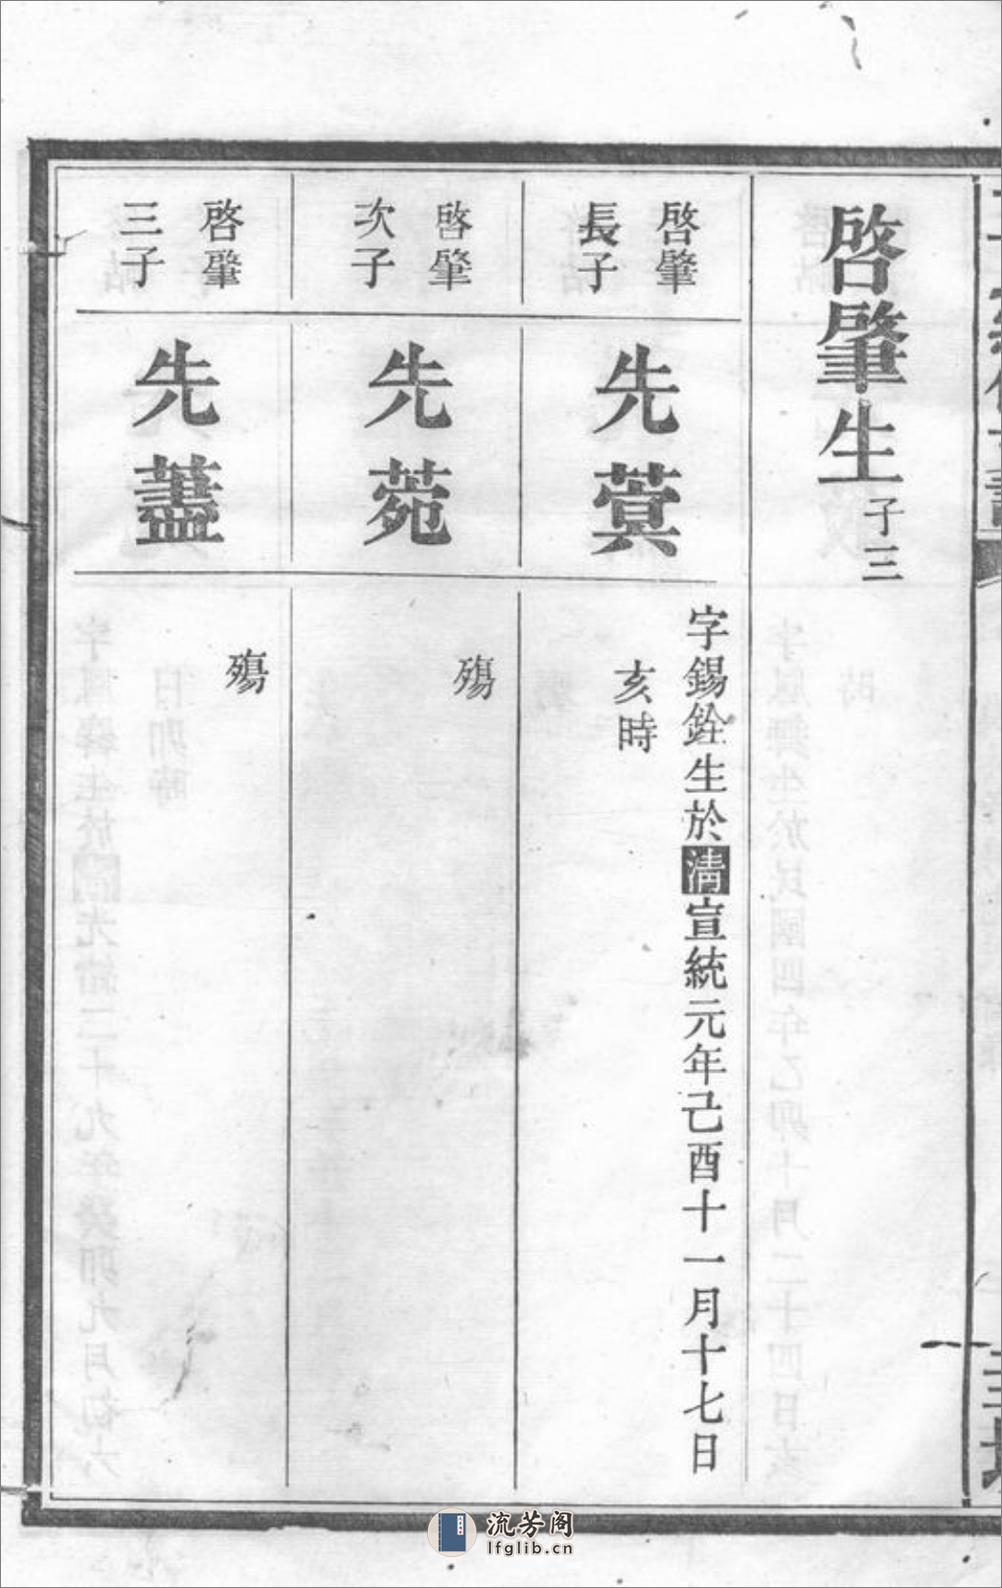 啓肇生子三
啓肇
長子
先蓂
字錫銓生於淸宣統元年己酉十一月十七日
亥時
啓肇
次子
先菀
殤
啓肇
三子
先藎
殤
流芳阁
lfglib.cn